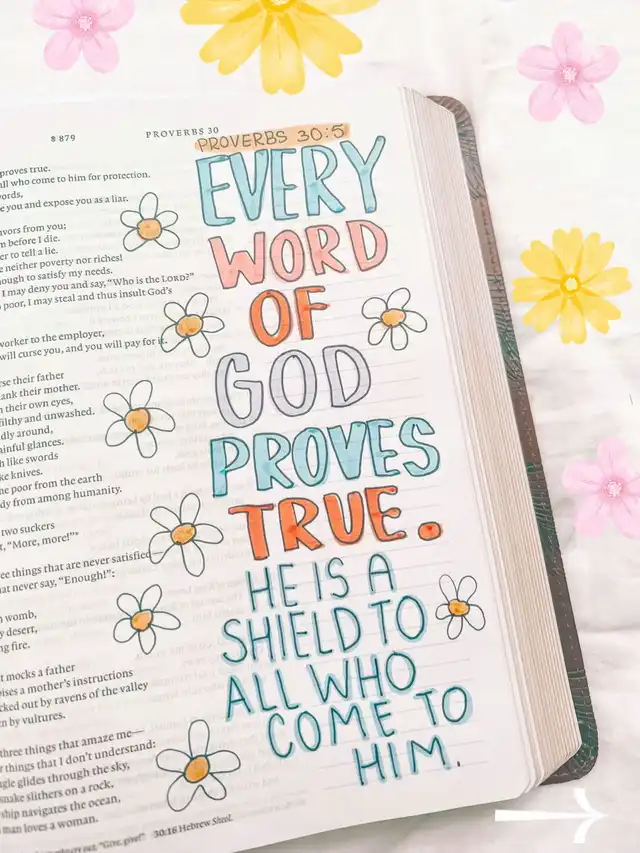 8 879
PROVERBS 30
proves true.
all who come to him for protection.
words,
e you and expose you as a liar.
avors from you;
n before I die.
er to tell a lie.
e neither poverty nor riches!
ough to satisfy my needs.
I may deny you and say, “Who is the LORD?”
poor, I may steal and thus insult God’s
worker to the employer,
will curse you, and you will pay for it.
rse their father
hank their mother.
n their own eyes,
filthy and unwashed.
dly around,
ainful glances.
h like swords
ke knives.
he poor from the earth
dy from among humanity.
two suckers
t, “More, more!”*
ree things that are never satisfied—
hat never say, “Enough!”:
n womb,
y desert,
ng fire.
t mocks a father
pises a mother’s instructions
cked out by ravens of the valley
n by vultures.
three things that amaze me—
r things that I don’t understand:
gle glides through the sky,
snake slithers on a rock,
ship navigates the ocean,
man loves a woman.
out: “Give, give!” 30:16 Hebrew Sheol.
PROVERBS 30:5
EVERY
WORD
OF
GOD
PROVES
TRUE.
HE IS A
SHIELD TO
ALL WHO
COME TO
HIM.